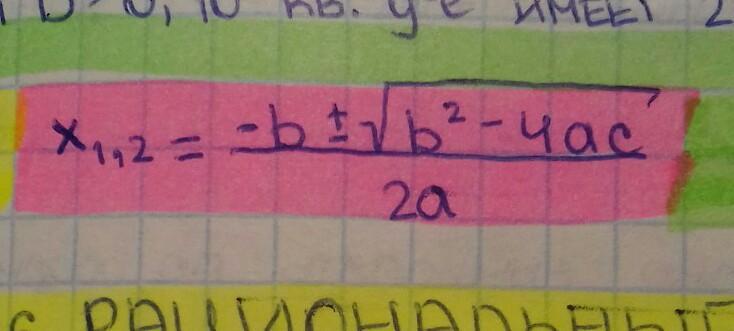 D > 0, то кв. ур-е имеет 2
x₁,₂ = (-b ± √(b² - 4ac)) / 2a
с рациональны